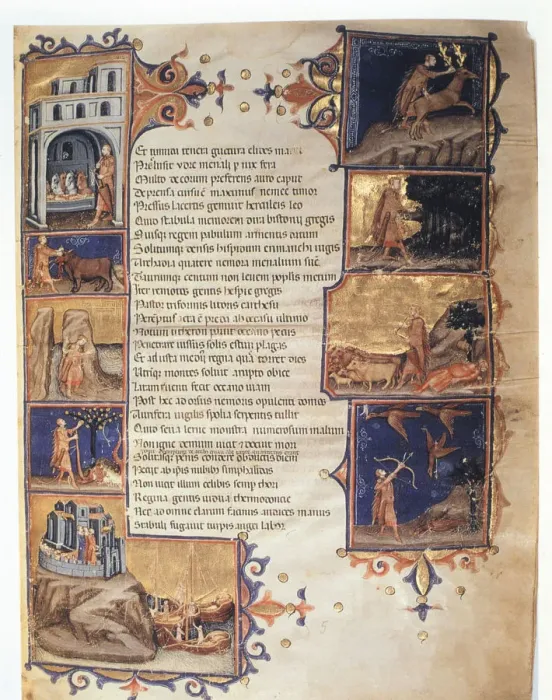 Et tumidi tenera guttura elidens manu
Prelusit
Multo decorum preferens auro caput
Deprensa cursu e maximus nemee timor
Pressus lacertis gemuit herculeis leo
Quid stabula memorem dira bistonii gregis
Suisque regem pabulum armentis datum
Solitumque densis hispidum erimanthi iugis
Archadia quatere nemora menalium sue
Taurumque centum non leuem populis metum
Inter remotos gentis hesperie gregis
Pastor triformis litoris
Peremptus acta e preda ab occasu ultimo
Notum citheron pauit occeano pecus
Penetrare iussus solis estiui plagas
Et adusta medius regna que torret dies
Utrimque montes soluit arupto obice
Latam ruenti fecit oceano uiam
Post hec adorsus nemoris opulenti domos
Aurifera uigilis spolia serpentis tullit
Quid seua lerne monstra numerosum malum
Non igne demum uicit et docuit mori
Solitasque penis condere obductis diem
Petit ab ipsis nubibus stimphalidas
Non uicit illum celibis semper thori
Regina gentis uidua thermodontie
Nec ad omne clarum facinus audaces manus
Stabuli fugauit turpis augei labor